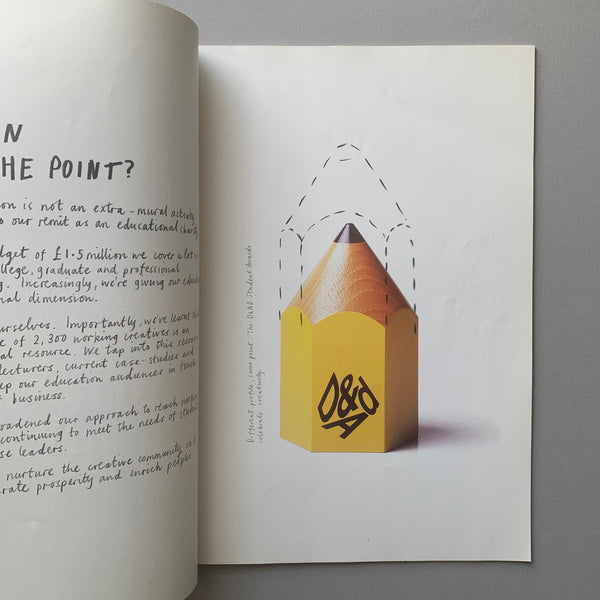 N
HE POINT?
on is not an extra-mural activity,
o our remit as an educational charity.
dget of £1.5 million we cover a lot
llege, graduate and professional
g. Increasingly, we're giving our
nal dimension.
urselves. Importantly, we've learnt
e of 2,300 working creatives is an
al resource. We tap into this
lecturers, current case-studies and
ep our education audiences in touch
business.
oadened our approach to reach
continuing to meet the needs of
se leaders.
nurture the creative community, so
rate prosperity and enrich people's
Different profile, same point. The D&AD Student Awards
celebrate creativity.
D&AD